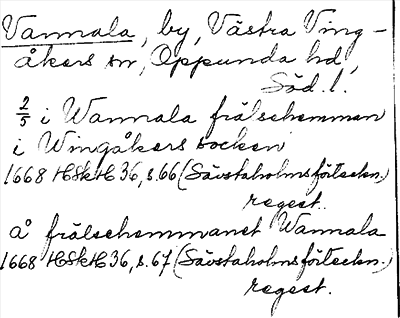 Vannala, by, Västra Ving-
åkers sn, Oppunda hd,
Söd. l.
2/5 i Wannala frälsehemman
i Wingåkers socken
1668 HSkH 36, s. 66 (Sävstaholmsförteckn.)
regest.
å frälsehemmanet Wannala
1668 HSkH 36, s. 67 (Sävstaholmsförteckn.)
regest.